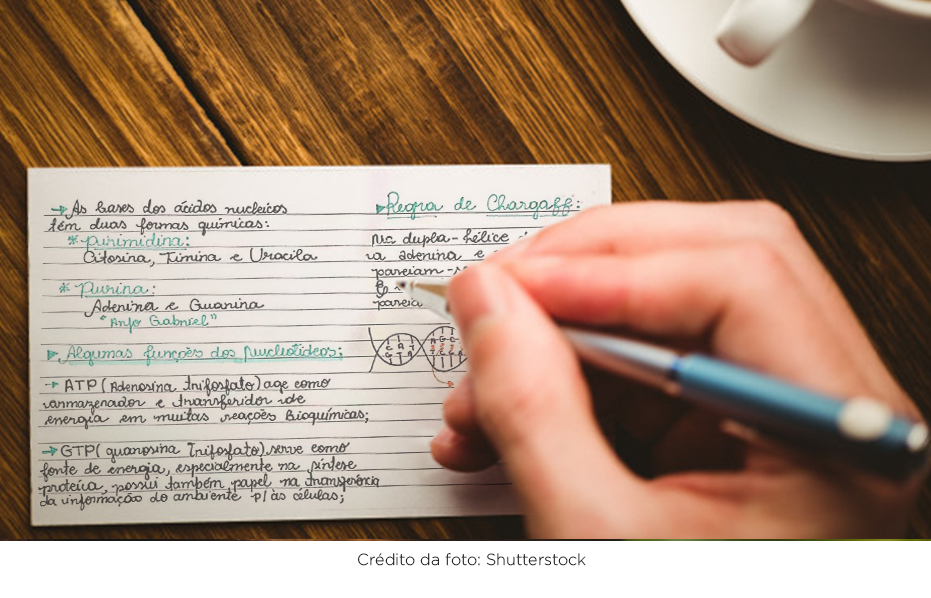 → As bases dos ácidos nucleicos
têm duas formas químicas:
* purimidina:
Citosina, Timina e Uracila
* Purina:
Adenina e Guanina
"Anjo Gabriel"
▶ Algumas funções dos Nucleotídeos:
→ ATP (Adenosina trifosfato) age como
armazenador e transferidor de
energia em muitas reações Bioquímicas;
→ GTP (guanosina Trifosfato) serve como
fonte de energia, especialmente na síntese
proteica, possui também papel na transferência
da informação do ambiente p/ as células;
▶ Regra de Chargaff:
Na dupla-hélice
adenina e
pareiam-
Crédito da foto: Shutterstock